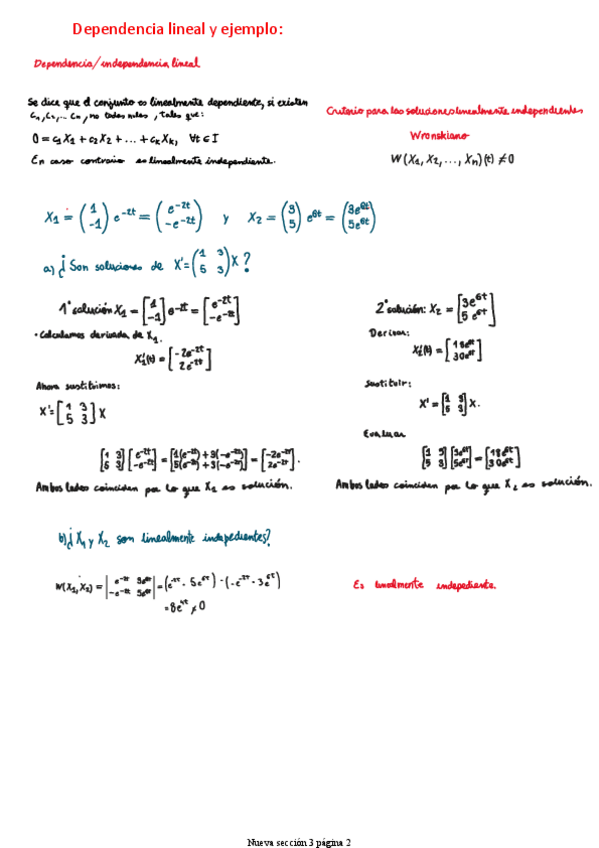 Dependencia lineal y ejemplo:
Dependencia/independencia lineal
Se dice que el conjunto es linealmente dependiente, si existen
C₁, C₂, ... Cₙ, no todos nulos, tales que:
0 = c₁X₁ + c₂X₂ + ... + cₖXₖ, ∀t ∈ I
En caso contrario es linealmente independiente.
Criterio para las soluciones linealmente independientes
Wronskiano
W(X₁, X₂, ..., Xₙ)(t) ≠ 0
X₁ = (1 -1) e^-2t = (e^-2t -e^-2t) y X₂ = (3 5) e^6t = (3e^6t 5e^6t)
a) ¿Son soluciones de X' = (1 3 5 3) X?
1ª solución X₁ = [1 -1] e^-2t = [e^-2t -e^-2t]
• Calculamos derivada de X₁.
X₁'(t) = [-2e^-2t 2e^-2t]
Ahora sustituimos:
X' = [1 3 5 3] X
[1 3 5 3] [e^-2t -e^-2t] = [1(e^-2t)+3(-e^-2t) 5(e^-2t)+3(-e^-2t)] = [-2e^-2t 2e^-2t].
Ambos lados coinciden por lo que X₁ es solución.
2ª solución: X₂ = [3e^6t 5e^6t]
Derivar:
X₂'(t) = [18e^6t 30e^6t]
Sustituir:
X' = [1 3 5 3] X.
Evaluar
[1 3 5 3] [3e^6t 5e^6t] = [18e^6t 30e^6t]
Ambos lados coinciden por lo que X₂ es solución.
b) ¿X₁ y X₂ son linealmente indepedientes?
W(X₁, X₂) = |e^-2t 3e^6t -e^-2t 5e^6t| = (e^-2t · 5e^6t) - (-e^-2t · 3e^6t)
= 8e^4t ≠ 0
Es linealmente indepediente.
Nueva sección 3 página 2